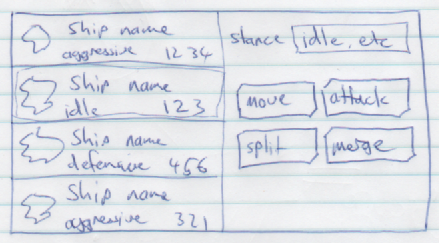 Ship name
aggressive 1234
Ship name
idle 123
Ship name
defensive 456
Ship name
aggressive 321
stance idle, etc
move attack
split merge